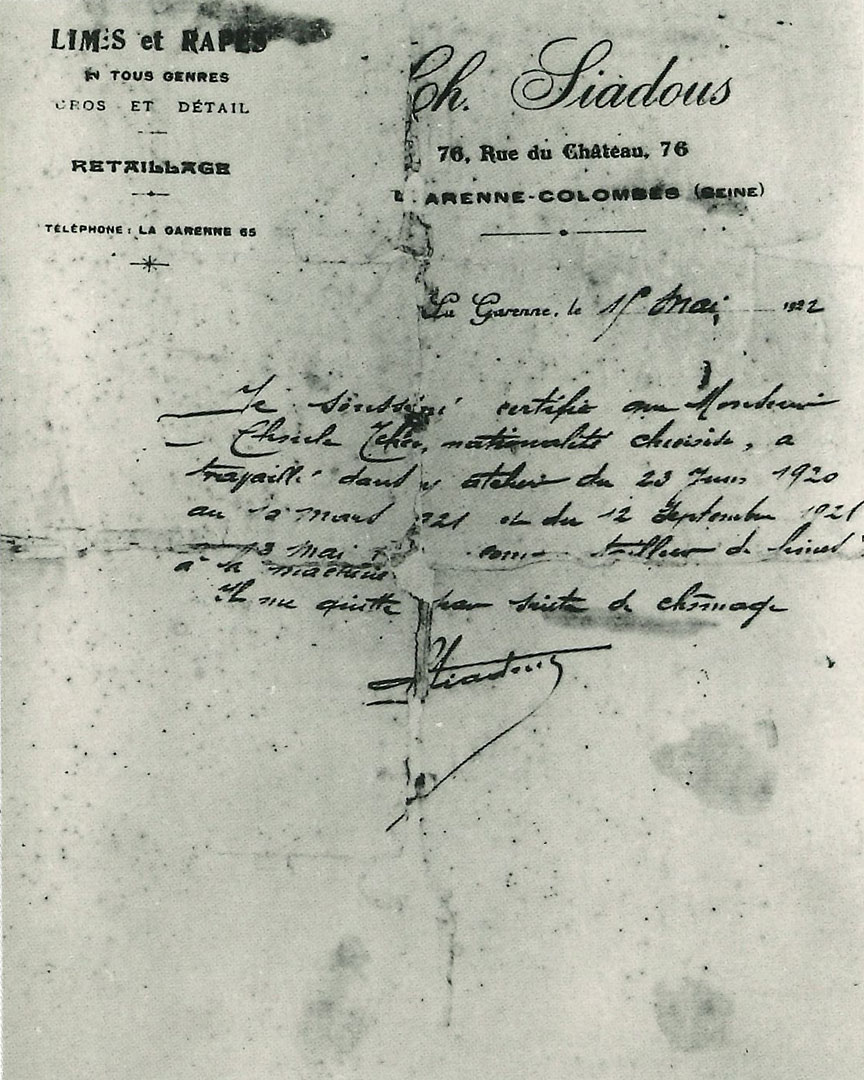 LIMES et RAPES
EN TOUS GENRES
GROS ET DÉTAIL
RETAILLAGE
TÉLÉPHONE : LA GARENNE 65
Ch. Siadous
76, Rue du Château, 76
LA GARENNE-COLOMBES (SEINE)
La Garenne, le 15 Mai 1922
Je soussigné certifie que Monsieur
nationalité chinoise, a
travaillé dans atelier du 23 Juin 1920
au 10 mars 1921 et du 12 Septembre 1921
13 Mai comme tailleur de limes
à la machine
Il me quitte par suite de chômage
Siadous